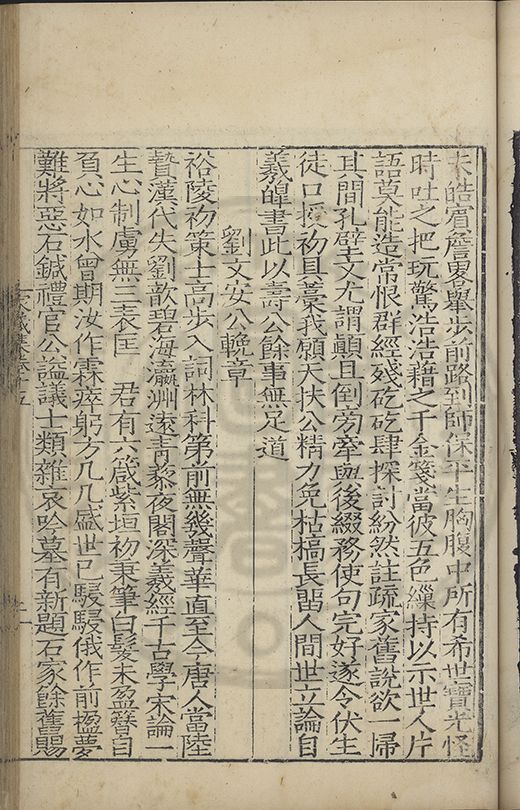 未皓眉詹畧舉步前路到師保平生胸腹中所有希世寶光怪
時吐之把玩驚浩浩藉之千金箋當彼五色繅持以示世人片
語莫能造常恨群經殘矻矻肆探討紛然註疏家舊說欲一掃
其間孔壁文尤謂顛且倒旁牽與後綴務使句完好遂令伏生
徒口授初具藁我願天扶公精力免枯槁長留人間世立論自
羲皥書此以壽公餘事無足道
劉文安公輓章
裕陵初策士高步入詞林科第前無幾聲華直至今唐人當陸
贄漢代失劉歆碧海瀛洲遠青藜夜閣深羲經千古學宋論一
生心制虜無三表匡 君有六箴紫垣初秉筆白髮未盈簪自
負心如水曾期汝作霖瘁躬方几几盛世已駸駸俄作前楹夢
難將惡石鍼禮官公謚議士類雜哀吟墓有新題石家餘舊賜